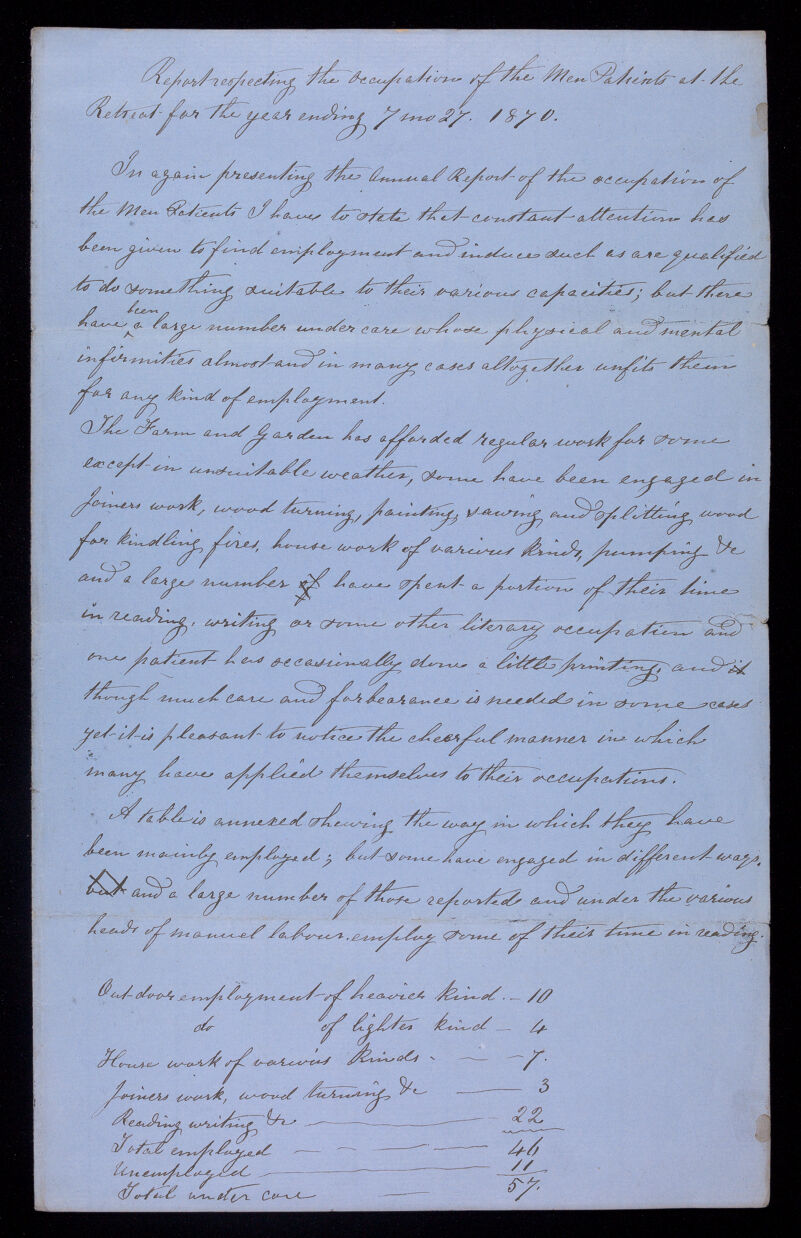 Report respecting the occupation of the Men Patients at the
Retreat for the year ending 7 mo 27. 1870.
In again presenting the Annual Report of the occupation of
the Men Patients I have to state that constant attention has
been given to find employment and induce such as are qualified
to do something suitable to their various capacities; but there
have been a large number under care whose physical and mental
infirmities almost and in many cases altogether unfits them
for any kind of employment.
The Farm and Garden has afforded regular work for some
except in unsuitable weather, some have been engaged in
Joiners work, wood turning, painting, sawing and splitting wood
for kindling fires, house work of various kinds, pumping &c
and a large number of have spent a portion of their time
in reading, writing or some other literary occupation and
one patient has occasionally done a little printing, and it
though much care and forbearance is needed in some cases
yet it is pleasant to notice the cheerful manner in which
many have applied themselves to their occupations.
A table is annexed shewing the way in which they have
been mainly employed; but some have engaged in different ways.
but and a large number of those reported and under the various
heads of manuel labour employ some of their time in reading.
Out door employment of heavier kind. - 10
do of lighter kind - 4
House work of various kinds - — - 7.
Joiners work, wood turning &c — 3
Reading writing &c — 22
Total employed — - — — 46
Unemployed — 11
Total under care — 57.